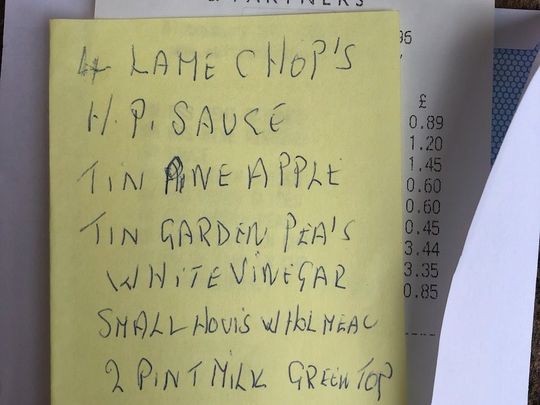 & PARTNERS
95
£
0.89
1.20
1.45
0.60
0.60
0.45
3.44
3.35
0.85
4 LAME CHOP'S
H.P. SAUCE
TIN PINE APPLE
TIN GARDEN PEA'S
WHITE VINEGAR
SMALL HOVIS WHOLMEAL
2 PINT MILK GREEN TOP